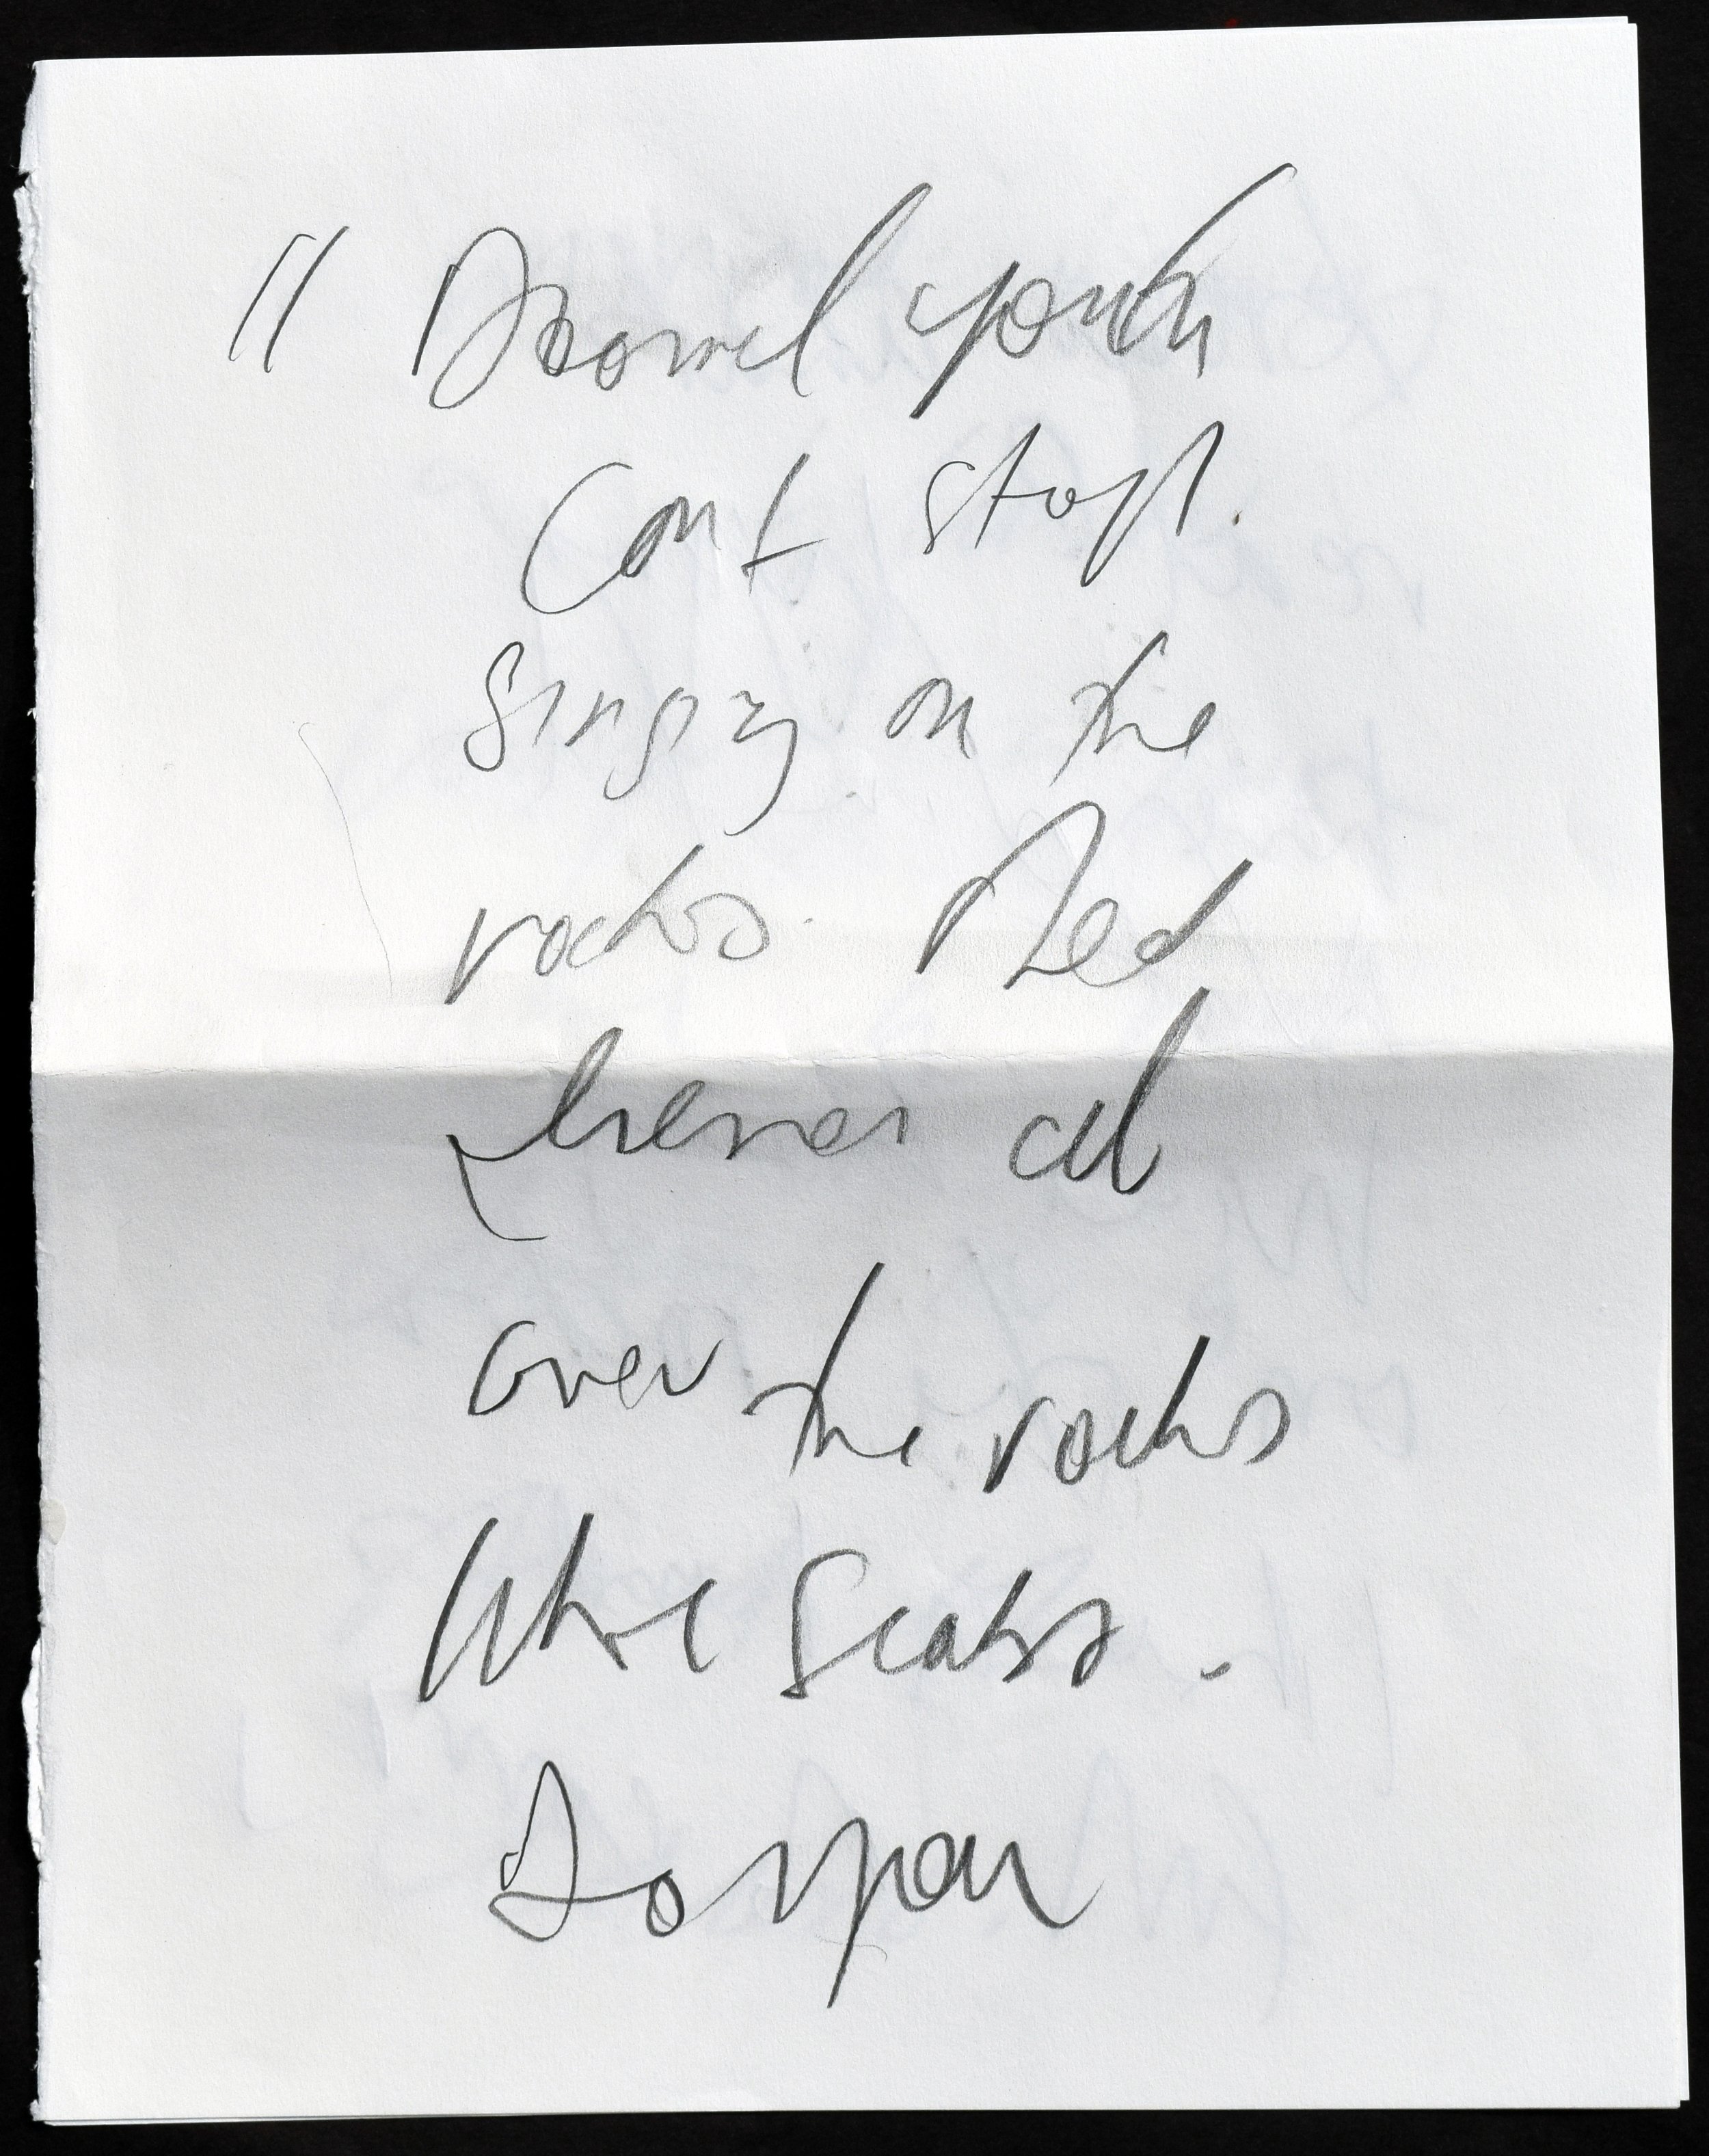 " Doomed youth
Cant stop.
Singing on the
rocks. Red
all
over the rocks
like Scabs.